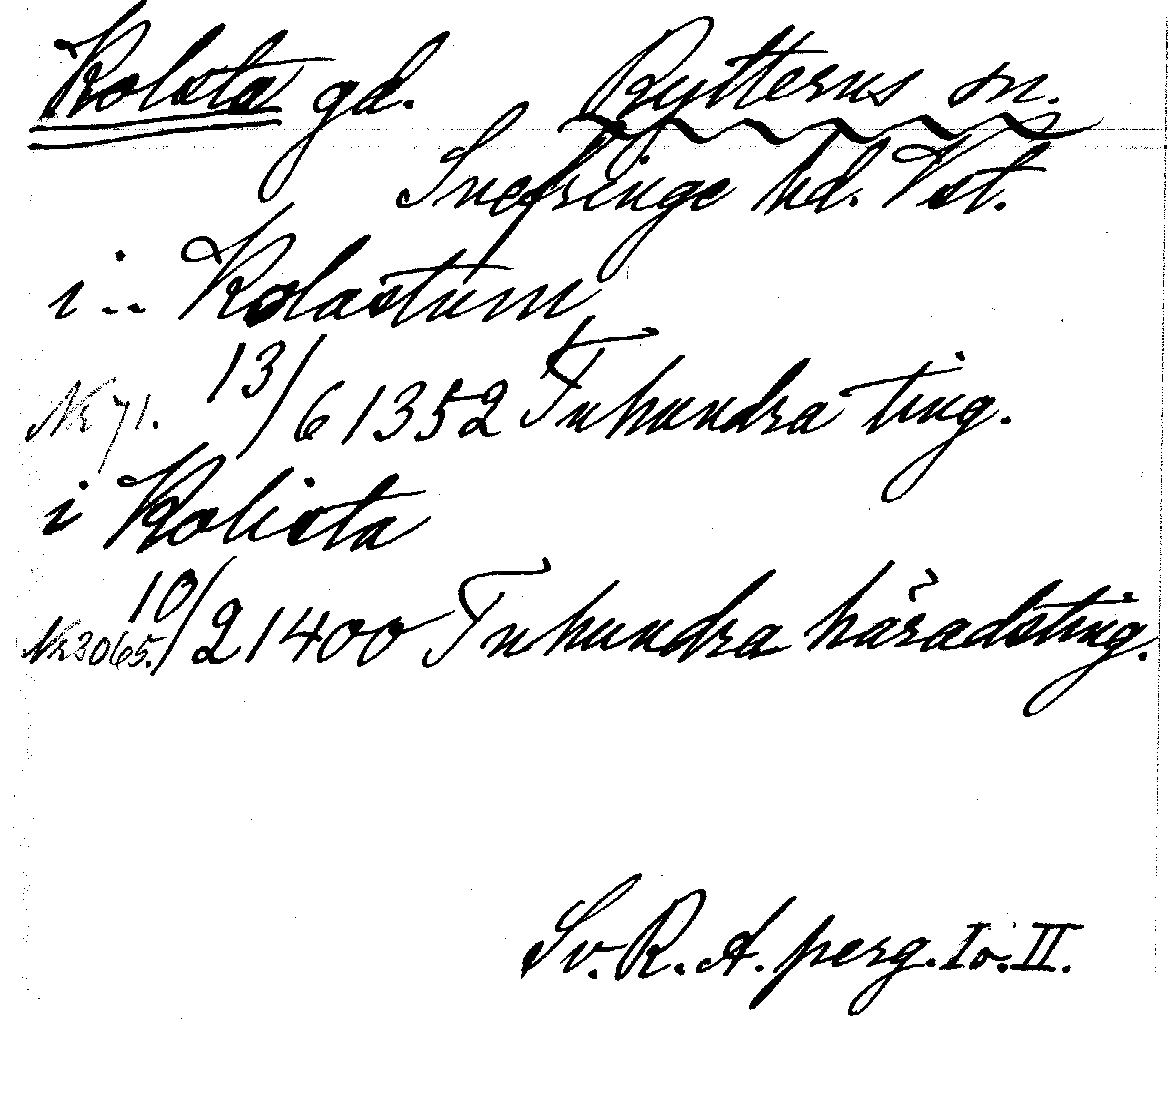 Kolsta gd. Rytterns sn.
Snefringe hd. Vst.
i -- Kolastum
Nr 71. 13/6 1352 Tuhundra ting.
i Kolista
Nr 3065. 10/2 1400 Tuhundra häradsting.
Sv. R. A. perg. I o. II.